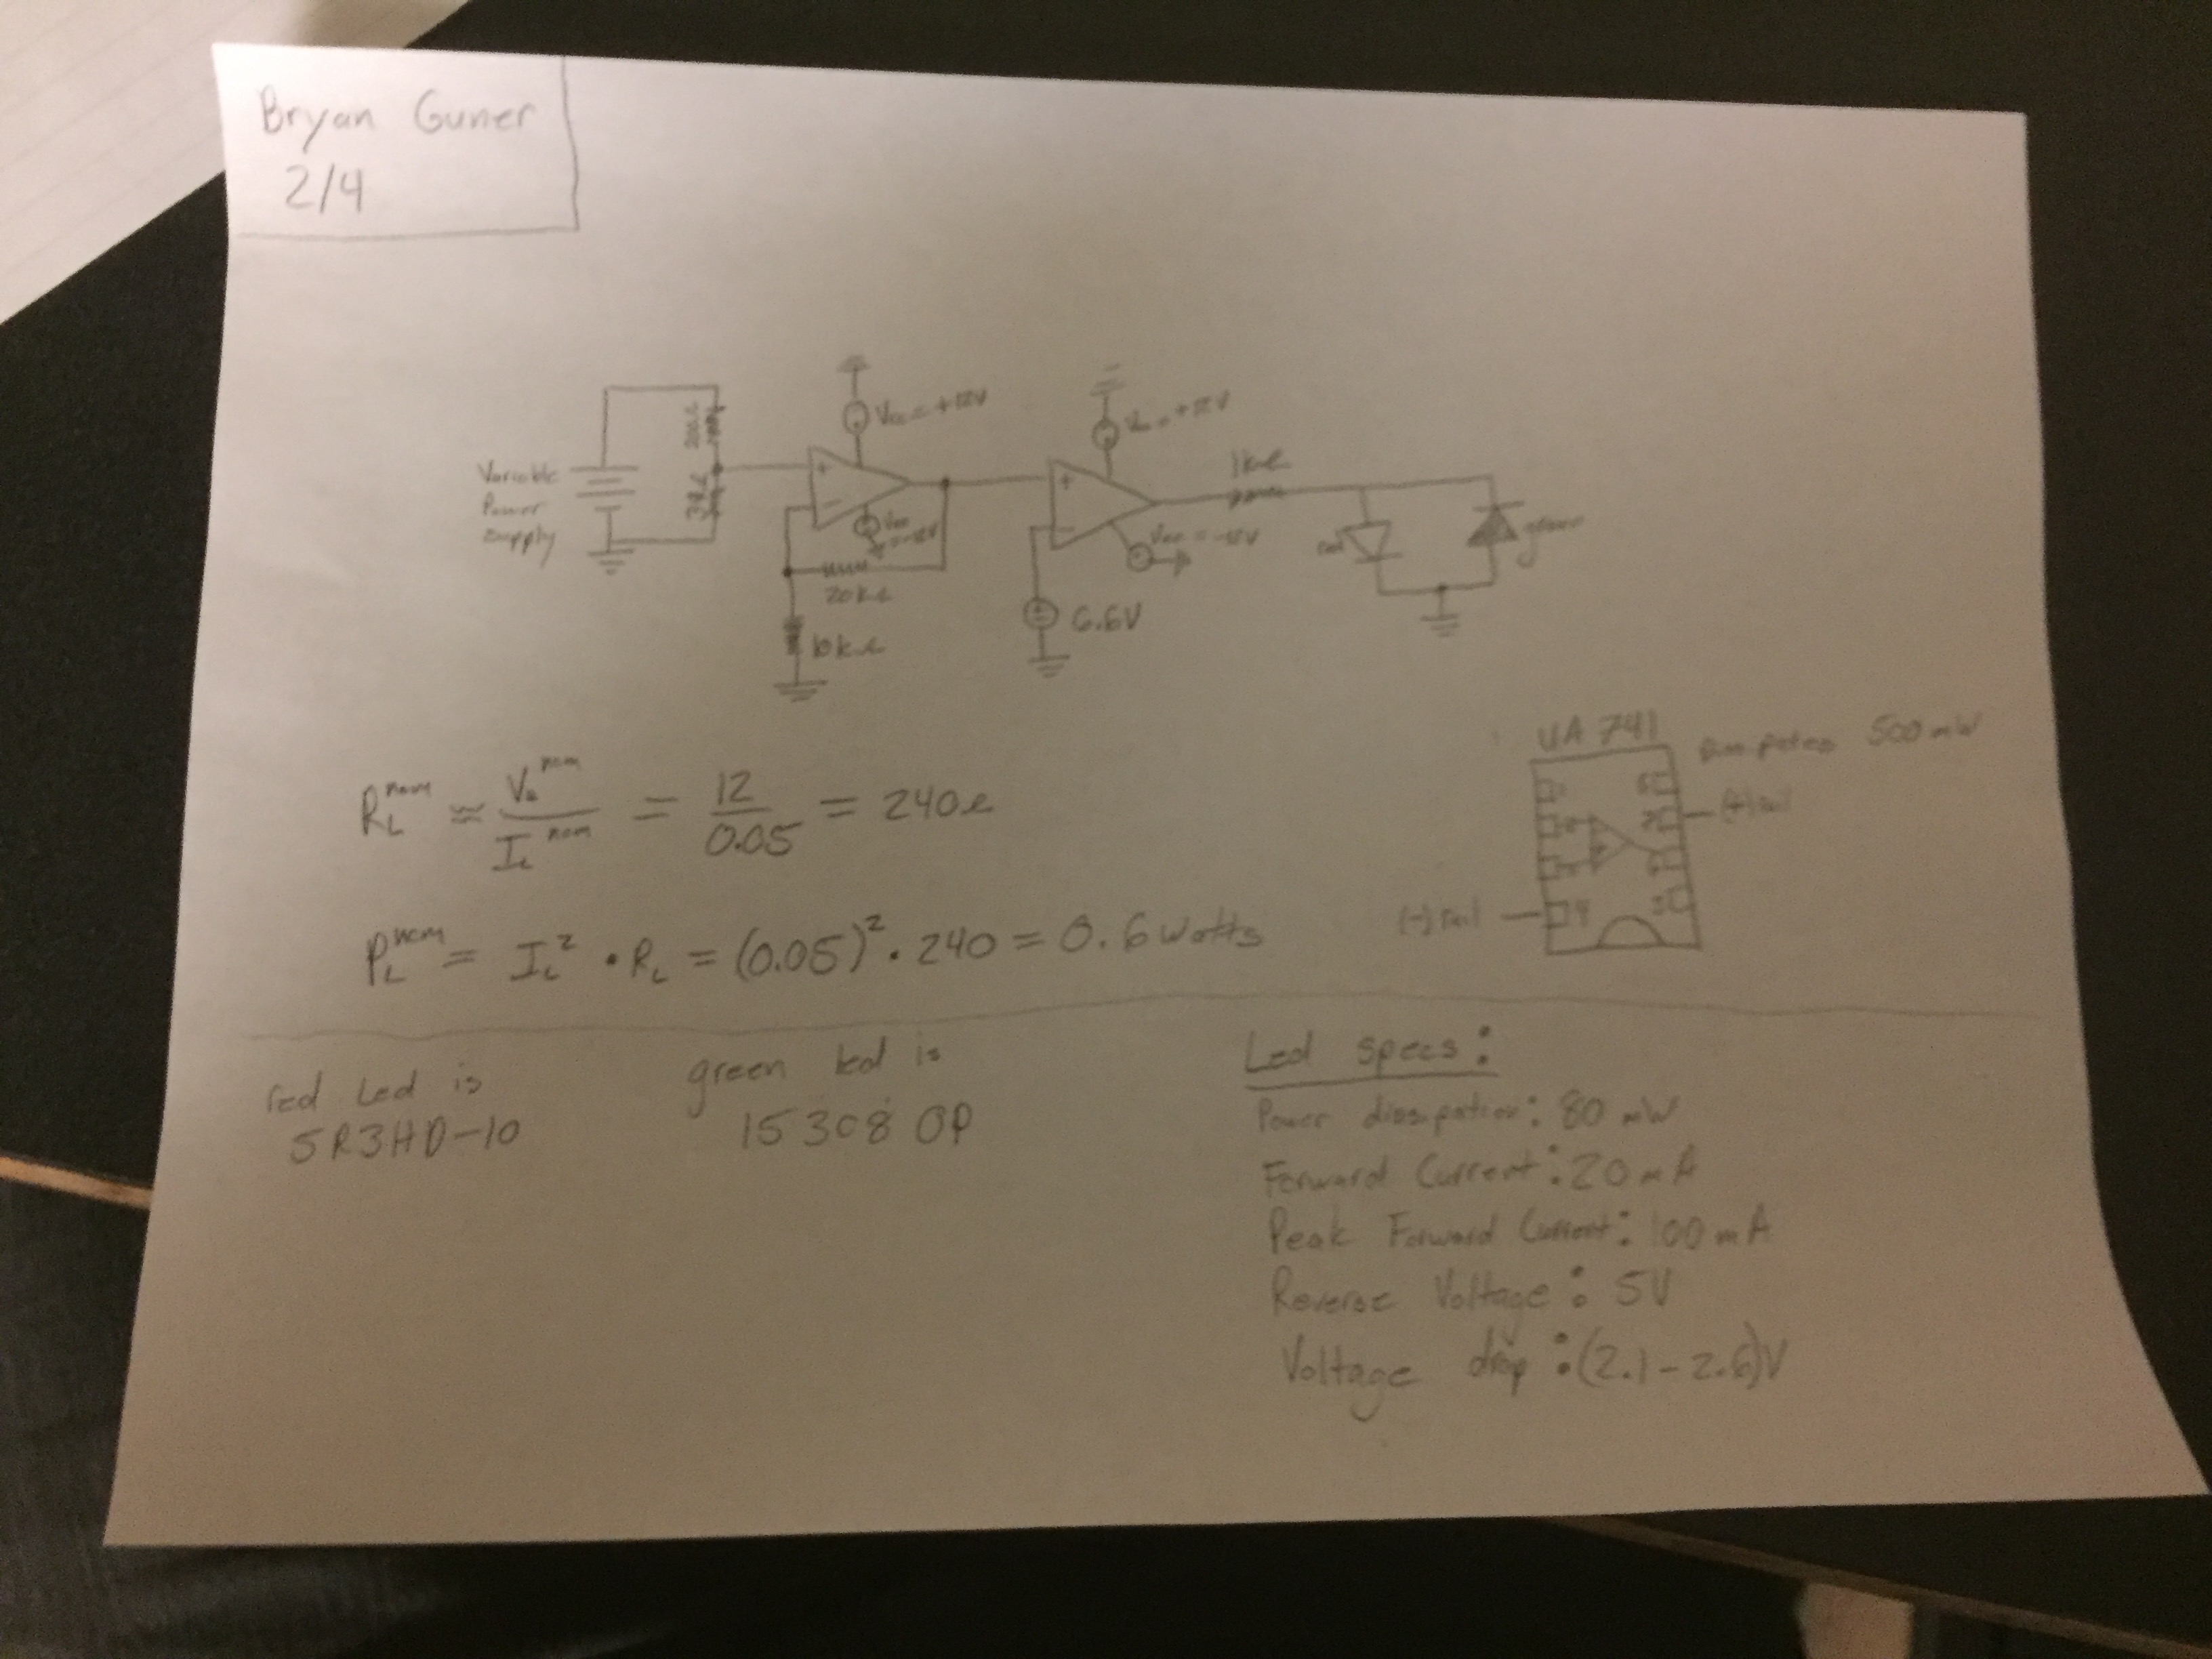 Bryan Guner
2/4
Variable
Power
Supply
Vcc = +12V
= -12V
20k
10k
= +12V
= -12V
6.6V
1k
red
green
R_L^nom ≈ V^nom / I_L^nom = 12 / 0.05 = 240Ω
P_L^nom = I_L² · R_L = (0.05)² · 240 = 0.6 watts
UA 741
500 mW
(+) rail
(-) rail
4
red Led is
5R3HD-10
green led is
15308
Led specs:
Power dissipation: 80 mW
Forward Current: 20 mA
Peak Forward Current: 100 mA
Reverse Voltage: 5V
Voltage drop: (2.1-2.6)V